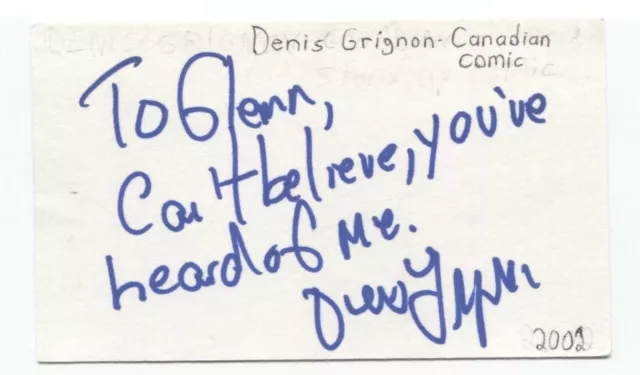 Denis Grignon - Canadian
comic
To Glenn,
Can't believe, you've
heard of me.
2002